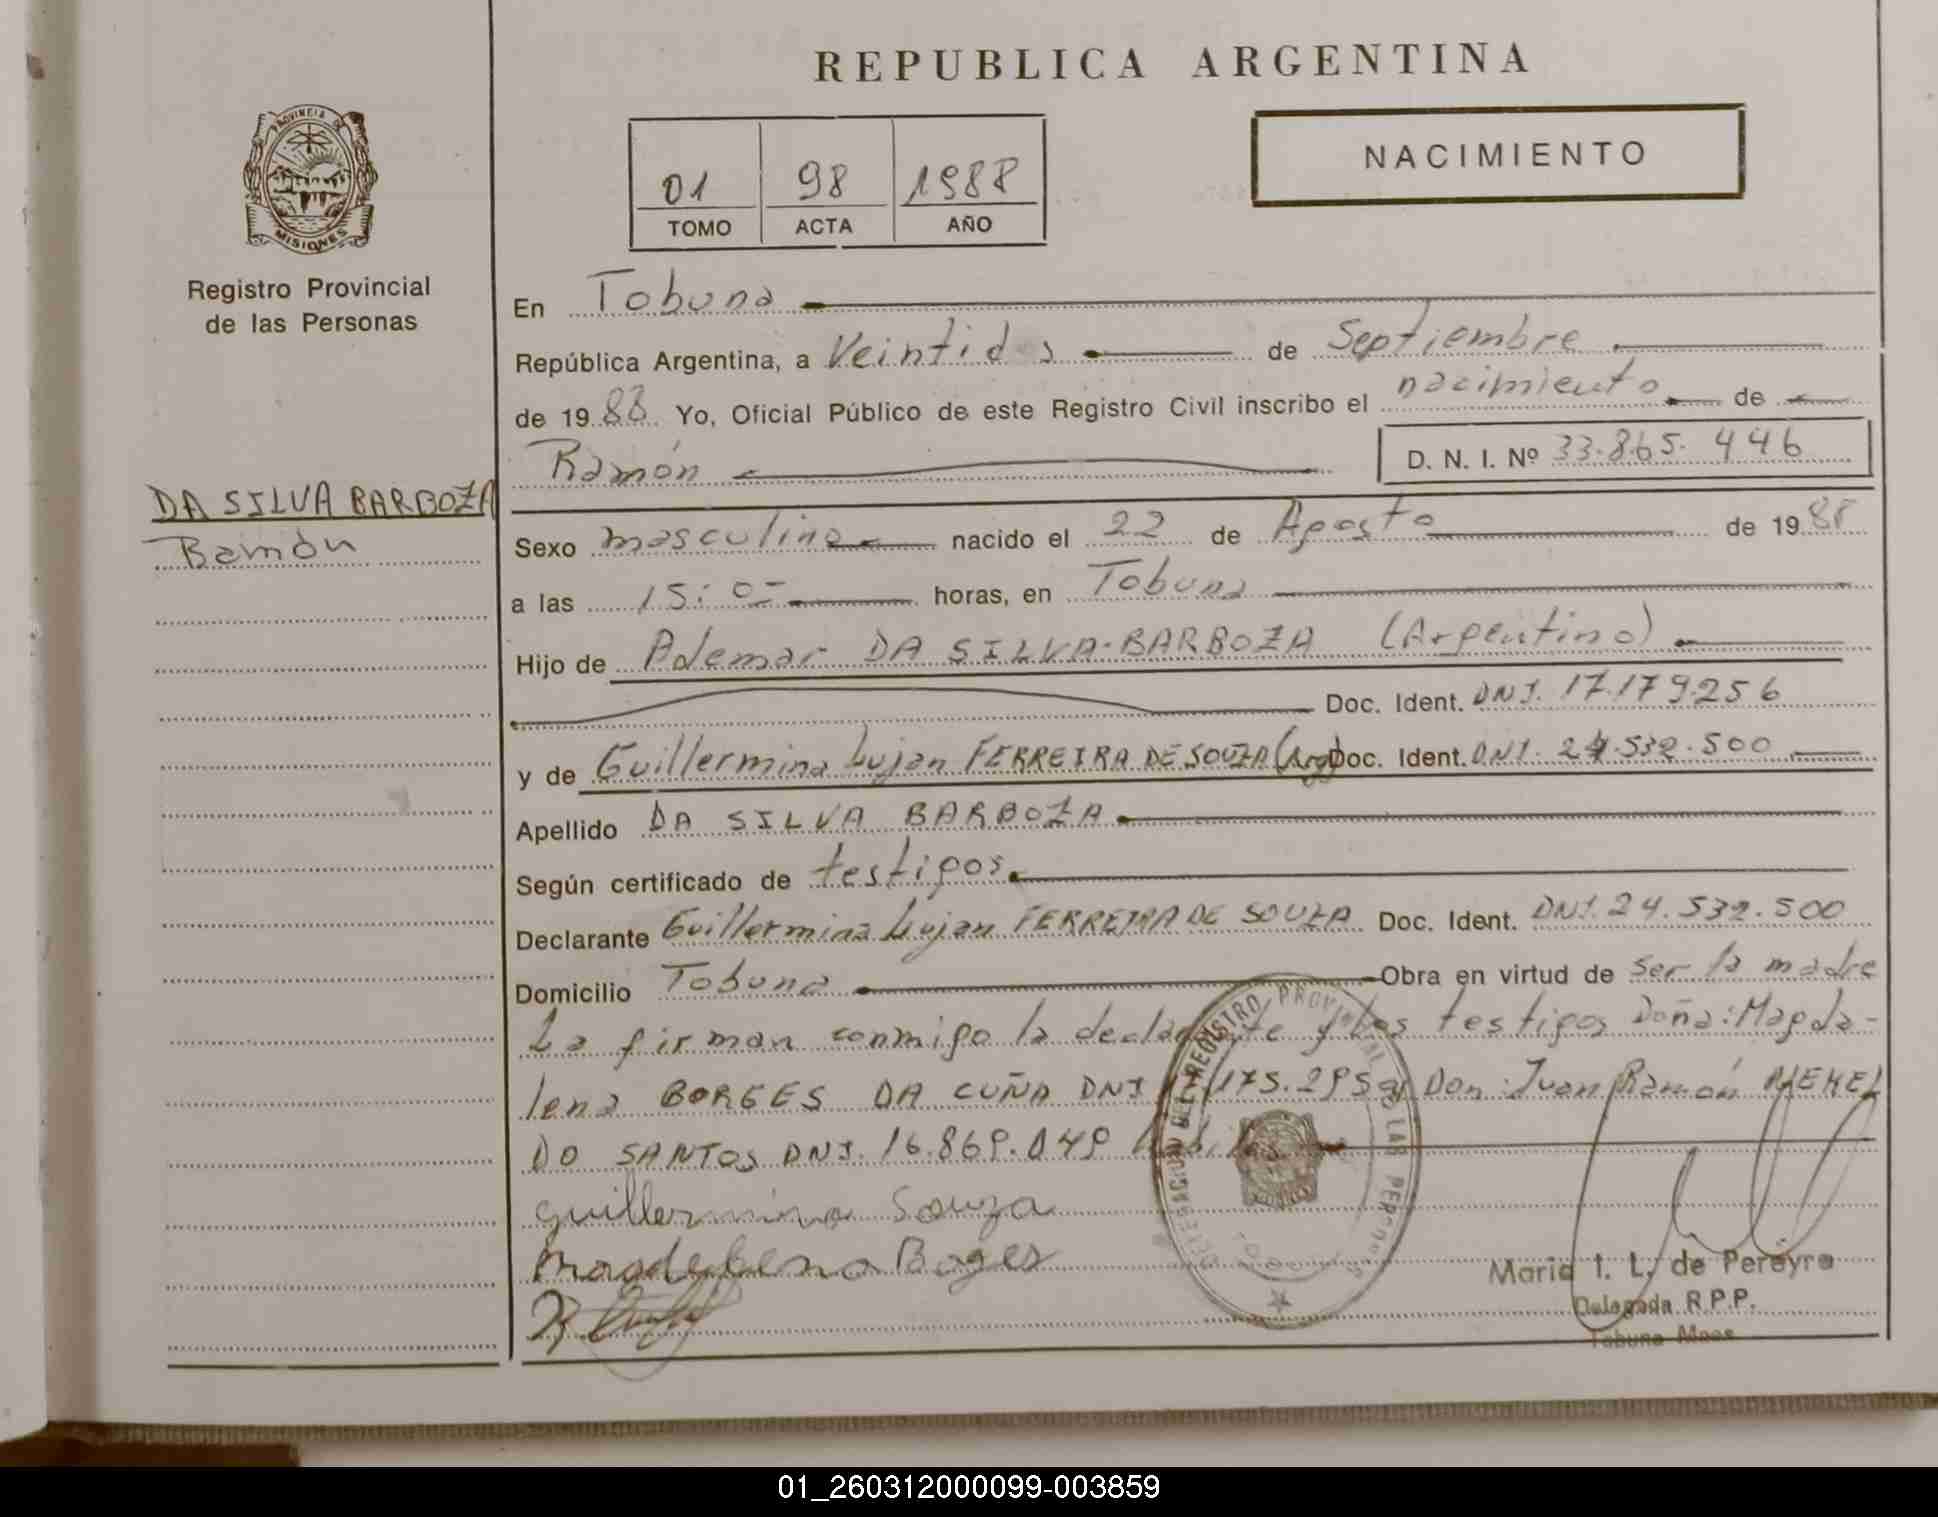 REPUBLICA ARGENTINA
PROVINCIA DE
MISIONES
Registro Provincial
de las Personas
01 98 1988
TOMO ACTA AÑO
NACIMIENTO
En Tobuna
República Argentina, a Veintidos de Septiembre
de 1988 Yo, Oficial Público de este Registro Civil inscribo el nacimiento de
Ramón D. N. I. Nº 33.865.446
DA SILVA BARBOZA
Ramón
Sexo masculino nacido el 22 de Agosto de 1988
a las 15: horas, en Tobuna
Hijo de Ademar DA SILVA-BARBOZA (Argentino)
Doc. Ident. DNI. 17.179.256
y de Guillermina Lujan FERREIRA DE SOUZA (Arg) Doc. Ident. DNI. 24.532.500
Apellido DA SILVA BARBOZA
Según certificado de testigos
Declarante Guillermina Lujan FERREIRA DE SOUZA Doc. Ident. DNI. 24.532.500
Domicilio Tobuna Obra en virtud de ser la madre
La firman conmigo la declarante y los testigos Doña: Magda-
lena BORGES DA CUÑA DNI Don: Juan Ramón
DO SANTOS DNI. 16.869.049
guillermina Souza
DELEGACION DEL REGISTRO PROVINCIAL DE LAS PERSONAS
Maria I. L. de Pereyra
Delegada R.P.P.
Tobuna Mnes
01_260312000099-003859